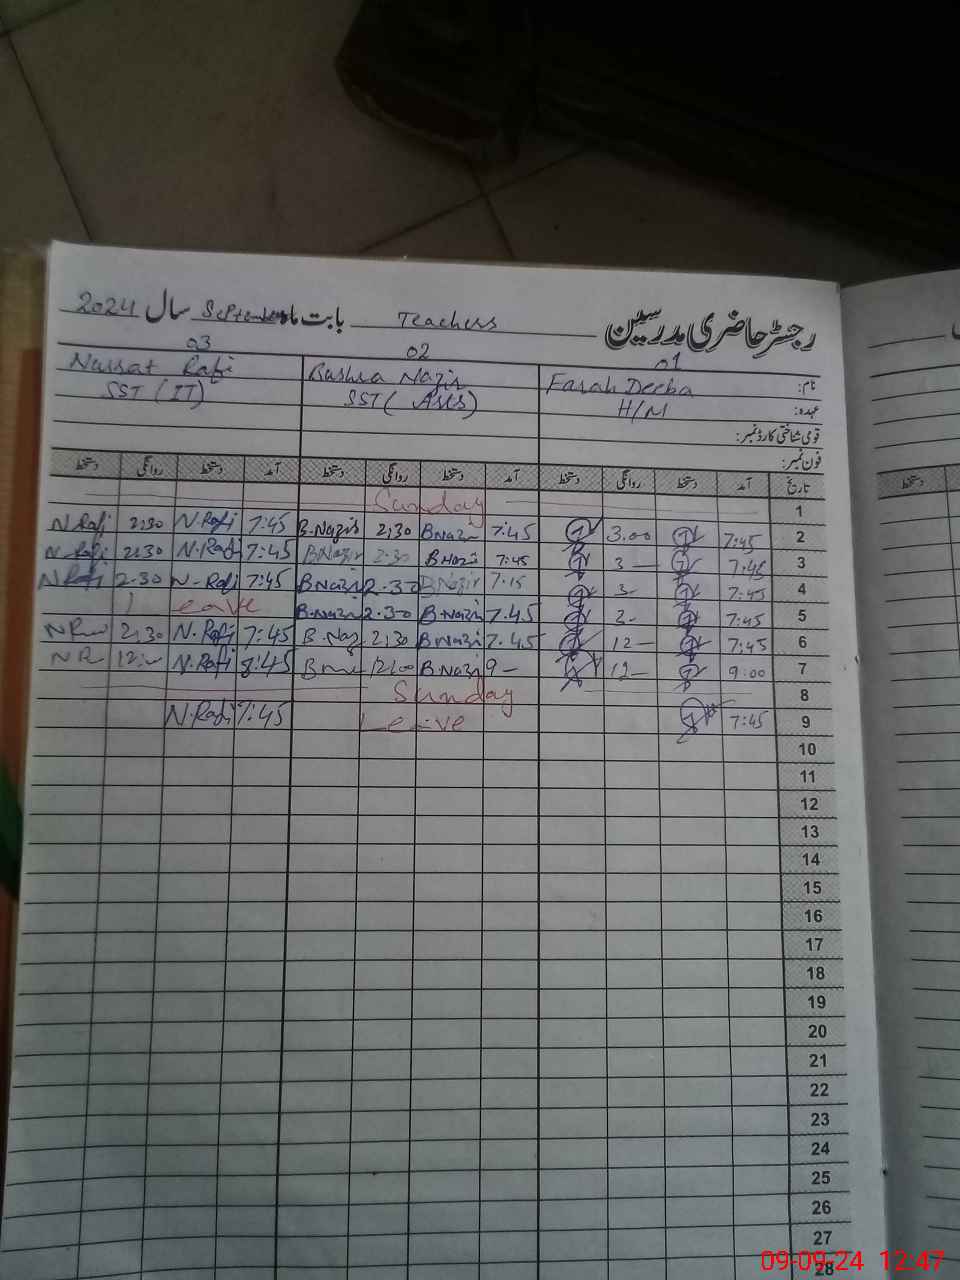 رجسٹر حاضری مدرسین Teachers بابت ماہ September سال 2024
01 02 03
نام: Farah Deeba Bushra Nazir Nussat Rafi
عہدہ: H/M SST ( SST (IT)
قومی شناختی کارڈ نمبر:
فون نمبر:
تاریخ آمد دستخط روانگی دستخط آمد دستخط روانگی دستخط آمد دستخط روانگی دستخط
1 Sunday
2 7:45 3.00 7:45 B Nazir 2:30 B.Nazir 7:45 N.Rafi 2:30 N.Rafi
3 7:45 3 7:45 B Nazir 2:30 B Nazir 7:45 N.Rafi 2:30 N.Rafi
4 7:45 3 7:15 B Nazir 2.30 B Nazir 7:45 N.Rafi 2.30 N Rafi
5 7:45 3 7.45 B.Nazir 2.30 B.Nazir Leave
6 7:45 12 7.45 B Nazir 2:30 B.Naz 7:45 N.Rafi 2:30
7 9:00 12 9 B Nazir 12:00 8:45 N.Rafi 12 N R
8 Sunday
9 7:45 Leave 7:45 N.Rafi
10
11
12
13
14
15
16
17
18
19
20
21
22
23
24
25
26
27
28
09-09-24 12:47